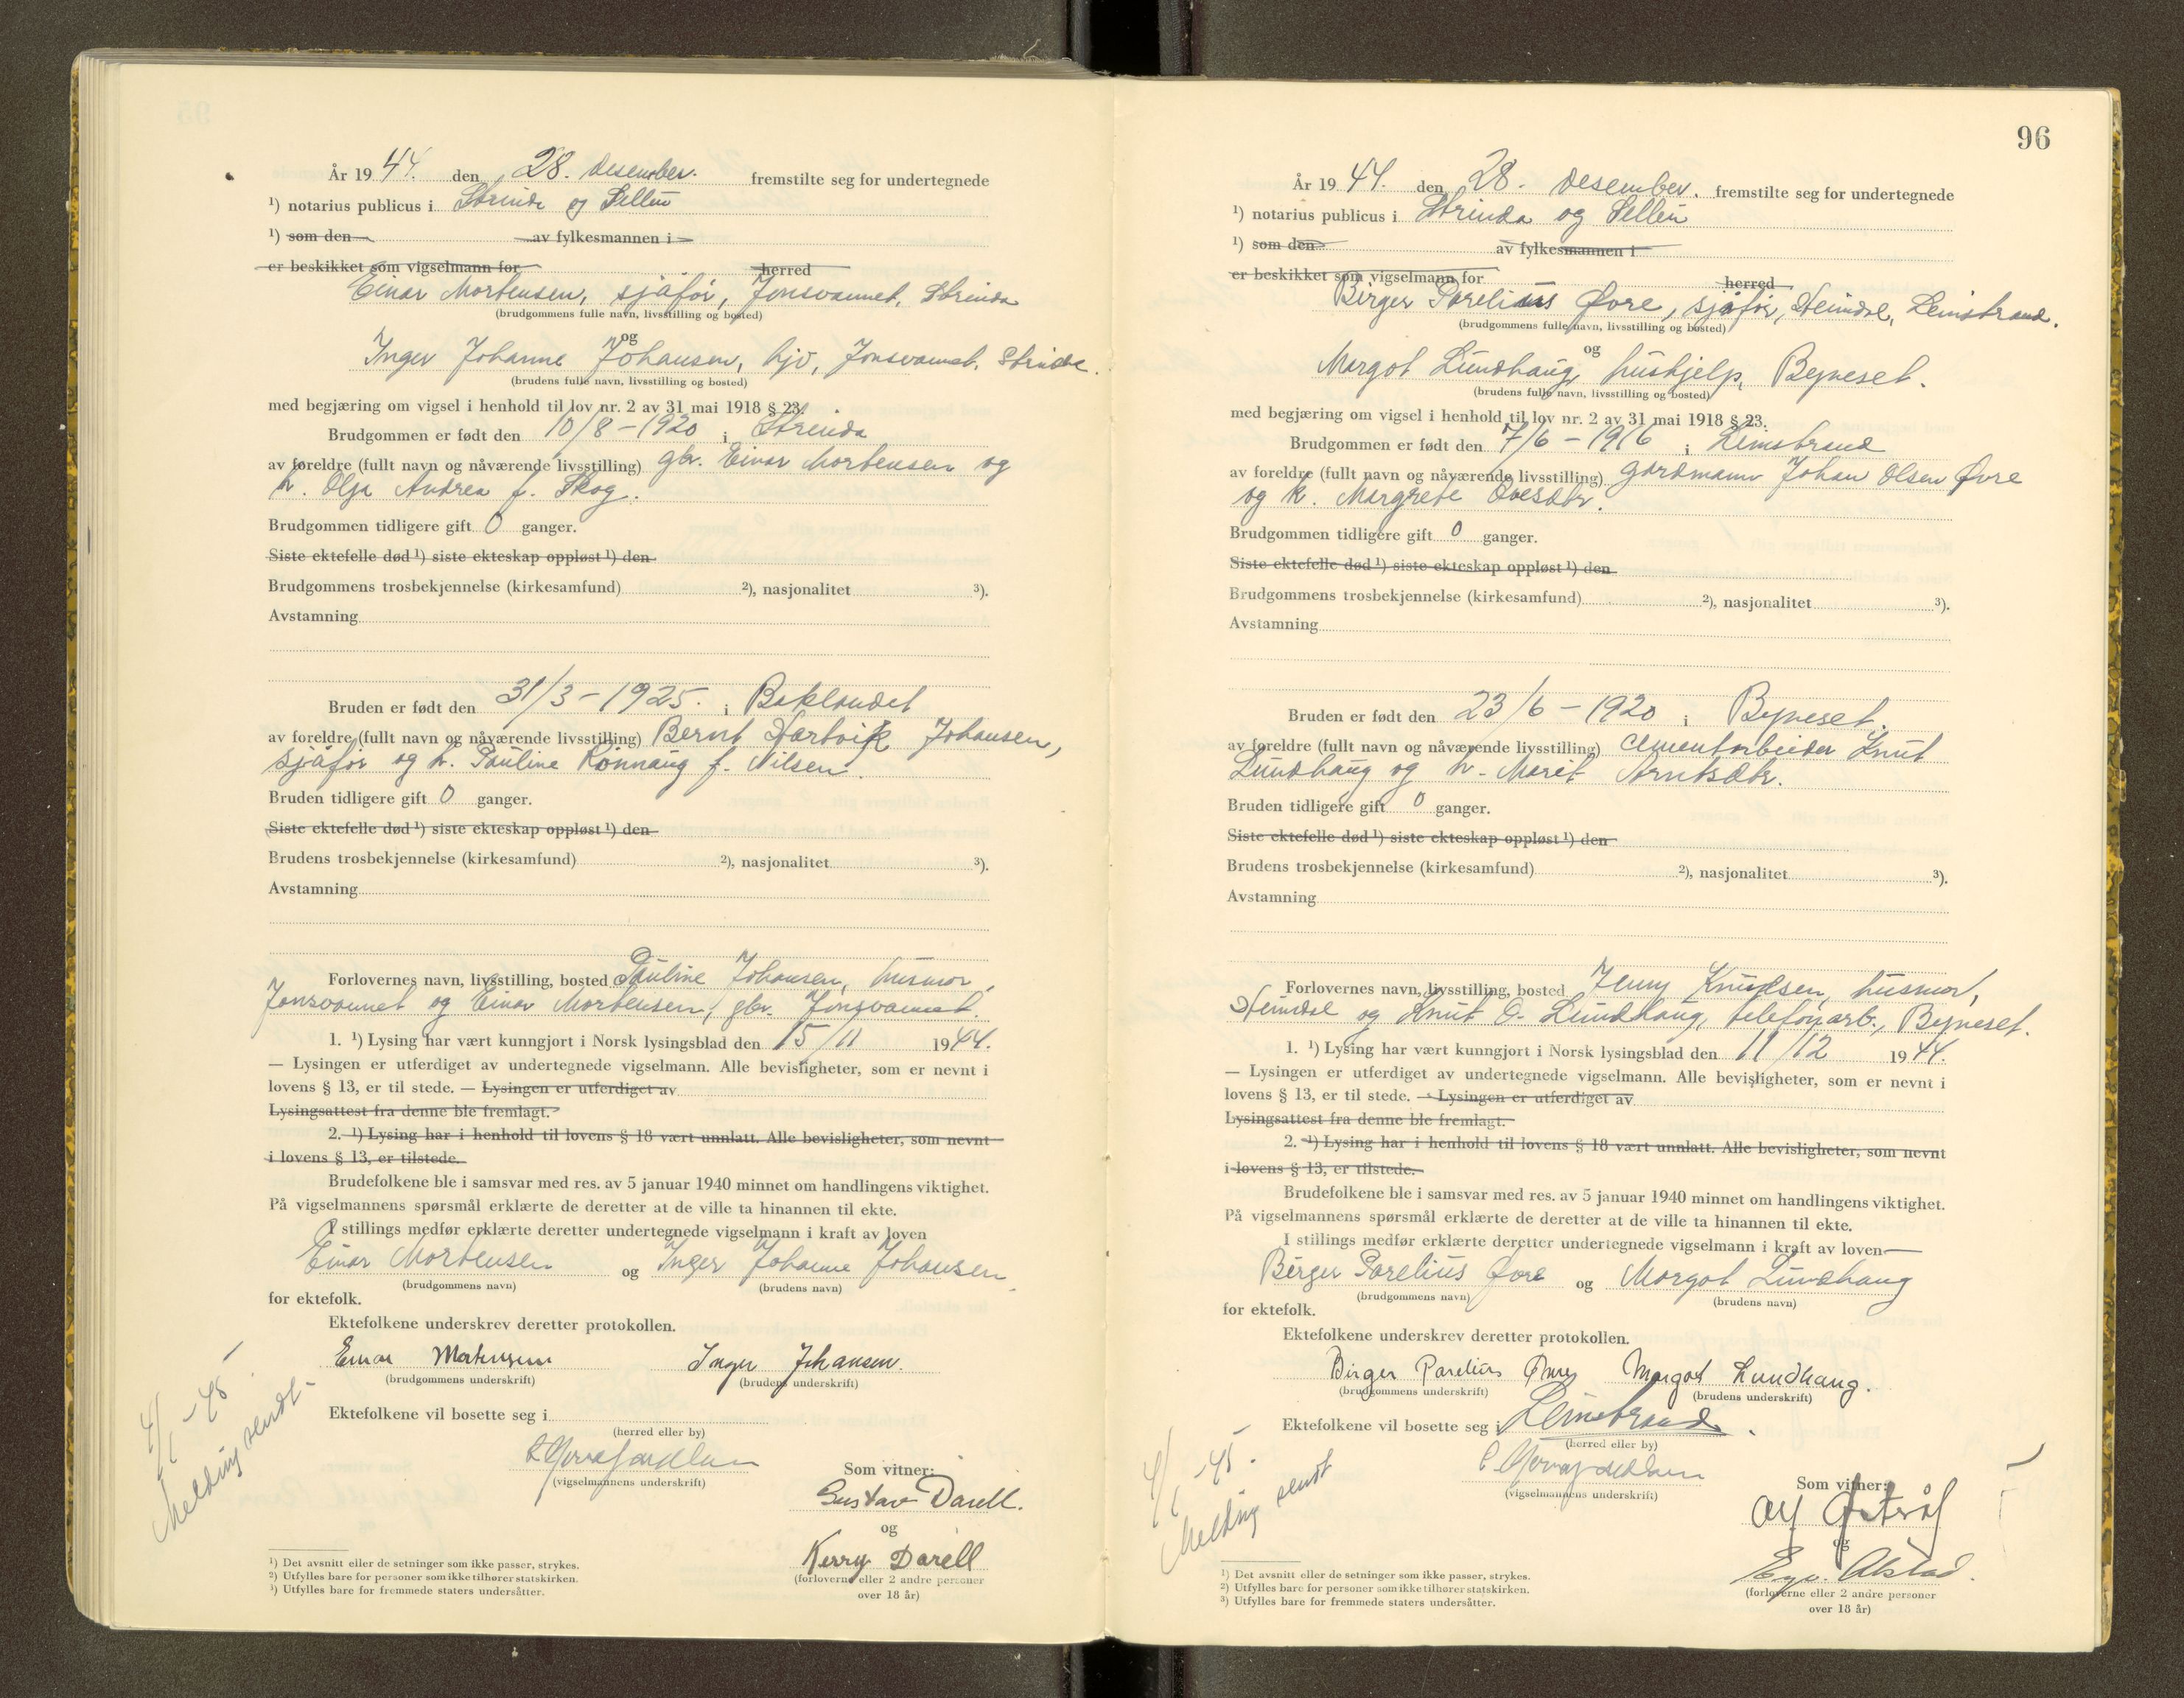 År 1944. den 28. desember. fremstilte seg for undertegnede
¹) notarius publicus i Strinda og Selbu
¹) som den av fylkesmannen i
er beskikket som vigselmann for herred
Einar Mortensen, sjåfør, Jonsvannet, Strinda
(brudgommens fulle navn, livsstilling og bosted)
og
Inger Johanne Johansen, hjv, Jonsvannet, Strinda.
(brudens fulle navn, livsstilling og bosted)
med begjæring om vigsel i henhold til lov nr. 2 av 31 mai 1918 § 23.
Brudgommen er født den 10/8-1920 i Strinda
av foreldre (fullt navn og nåværende livsstilling) gbr. Einar Mortensen og
h. Olga Andrea f. Skog.
Brudgommen tidligere gift 0 ganger.
Siste ektefelle død ¹) siste ekteskap oppløst ¹) den
Brudgommens trosbekjennelse (kirkesamfund) ²), nasjonalitet ³).
Avstamning
Bruden er født den 31/3-1925. i Baklandet
av foreldre (fullt navn og nåværende livsstilling) Bernt Hartvik Johansen,
sjåfør og h. Pauline Rønnaug f. Nilsen.
Bruden tidligere gift 0 ganger.
Siste ektefelle død ¹) siste ekteskap oppløst ¹) den
Brudens trosbekjennelse (kirkesamfund) ²), nasjonalitet ³).
Avstamning
Forlovernes navn, livsstilling, bosted Pauline Johansen, husmor,
Jonsvannet og Einar Mortensen, gbr. Jonsvannet.
1. ¹) Lysing har vært kunngjort i Norsk lysingsblad den 15/11 1944.
— Lysingen er utferdiget av undertegnede vigselmann. Alle bevisligheter, som er nevnt i
lovens § 13, er til stede. — Lysingen er utferdiget av
Lysingsattest fra denne ble fremlagt.
2. ¹) Lysing har i henhold til lovens § 18 vært unnlatt. Alle bevisligheter, som nevnt
i lovens § 13, er tilstede.
Brudefolkene ble i samsvar med res. av 5 januar 1940 minnet om handlingens viktighet.
På vigselmannens spørsmål erklærte de deretter at de ville ta hinannen til ekte.
I stillings medfør erklærte deretter undertegnede vigselmann i kraft av loven
Einar Mortensen og Inger Johanne Johansen
(brudgommens navn) (brudens navn)
for ektefolk.
Ektefolkene underskrev deretter protokollen.
Einar Mortensen Inger Johansen.
(brudgommens underskrift) (brudens underskrift)
Ektefolkene vil bosette seg i
(herred eller by)
(vigselmannens underskrift)
Som vitner:
Gustav Darell.
og
Kerry Darell
(forloverne eller 2 andre personer
over 18 år)
4/1-45.
Melding sendt
¹) Det avsnitt eller de setninger som ikke passer, strykes.
²) Utfylles bare for personer som ikke tilhører statskirken.
³) Utfylles bare for fremmede staters undersåtter.
96
År 1944. den 28. desember. fremstilte seg for undertegnede
¹) notarius publicus i Strinda og Selbu
¹) som den av fylkesmannen i
er beskikket som vigselmann for herred
Birger Parelius Øvre, sjåfør, Heimdal, Leinstrand.
(brudgommens fulle navn, livsstilling og bosted)
og
Margot Lundhaug, hushjelp, Byneset.
(brudens fulle navn, livsstilling og bosted)
med begjæring om vigsel i henhold til lov nr. 2 av 31 mai 1918 § 23.
Brudgommen er født den 7/6-1916 i Leinstrand
av foreldre (fullt navn og nåværende livsstilling) gårdmann Johan Olsen Øvre
og h. Margrete Ovesdtr.
Brudgommen tidligere gift 0 ganger.
Siste ektefelle død ¹) siste ekteskap oppløst ¹) den
Brudgommens trosbekjennelse (kirkesamfund) ²), nasjonalitet ³).
Avstamning
Bruden er født den 23/6-1920 i Byneset.
av foreldre (fullt navn og nåværende livsstilling) cementarbeider Knut
Lundhaug og h. Marit Arntsdtr.
Bruden tidligere gift 0 ganger.
Siste ektefelle død ¹) siste ekteskap oppløst ¹) den
Brudens trosbekjennelse (kirkesamfund) ²), nasjonalitet ³).
Avstamning
Forlovernes navn, livsstilling, bosted Jenny Knudsen, husmor,
Heimdal og Knut O. Lundhaug, telefonarb., Byneset.
1. ¹) Lysing har vært kunngjort i Norsk lysingsblad den 11/12 1944.
— Lysingen er utferdiget av undertegnede vigselmann. Alle bevisligheter, som er nevnt i
lovens § 13, er til stede. — Lysingen er utferdiget av
Lysingsattest fra denne ble fremlagt.
2. ¹) Lysing har i henhold til lovens § 18 vært unnlatt. Alle bevisligheter, som nevnt
i lovens § 13, er tilstede.
Brudefolkene ble i samsvar med res. av 5 januar 1940 minnet om handlingens viktighet.
På vigselmannens spørsmål erklærte de deretter at de ville ta hinannen til ekte.
I stillings medfør erklærte deretter undertegnede vigselmann i kraft av loven
Birger Parelius Øvre og Margot Lundhaug
(brudgommens navn) (brudens navn)
for ektefolk.
Ektefolkene underskrev deretter protokollen.
Birger Parelius Øvre Margot Lundhaug.
(brudgommens underskrift) (brudens underskrift)
Ektefolkene vil bosette seg i Leinstrand.
(herred eller by)
(vigselmannens underskrift)
Som vitner:
Alf
og
Alstad.
(forloverne eller 2 andre personer
over 18 år)
4/1-45.
Melding sendt
¹) Det avsnitt eller de setninger som ikke passer, strykes.
²) Utfylles bare for personer som ikke tilhører statskirken.
³) Utfylles bare for fremmede staters undersåtter.